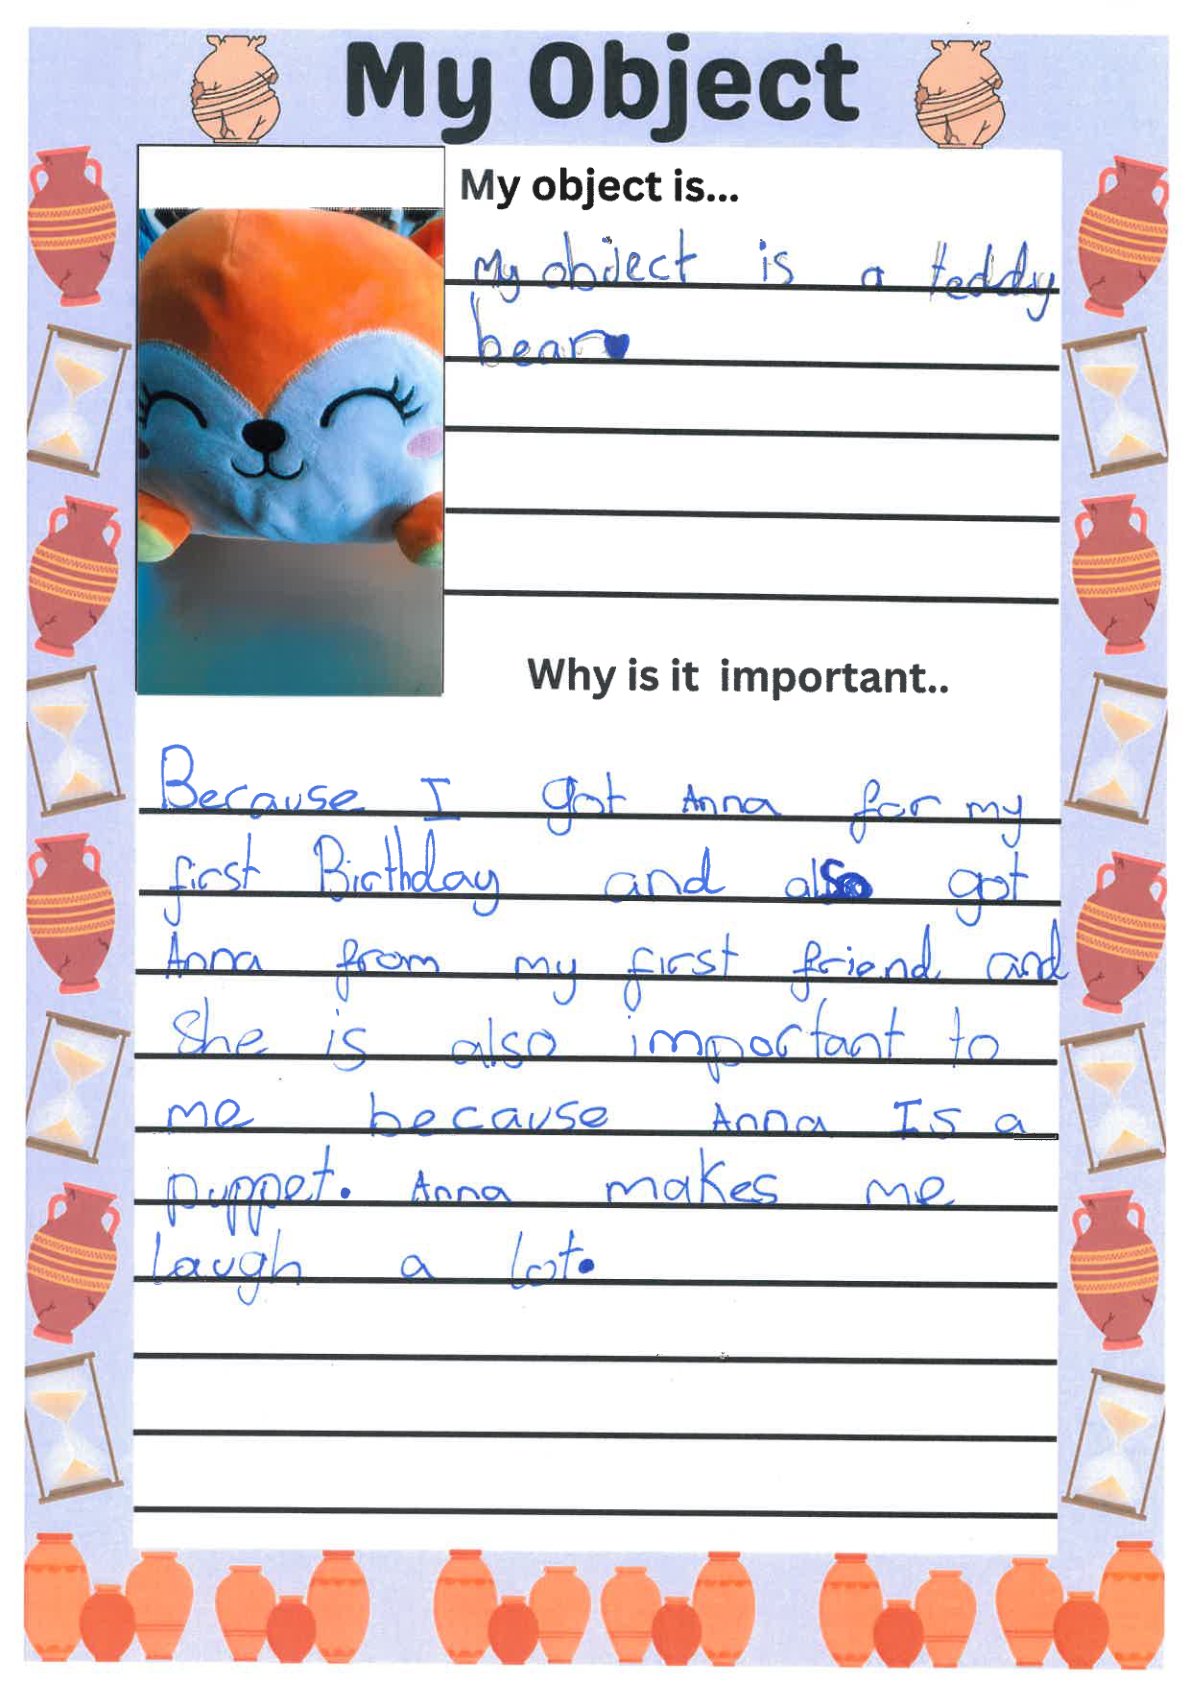 My Object
My object is...
My object is a teddy
bear
Why is it important..
Because I got Anna for my
first Birthday and also got
Anna from my first friend and
She is also important to
me because Anna Is a
puppet. Anna makes me
laugh a lot.